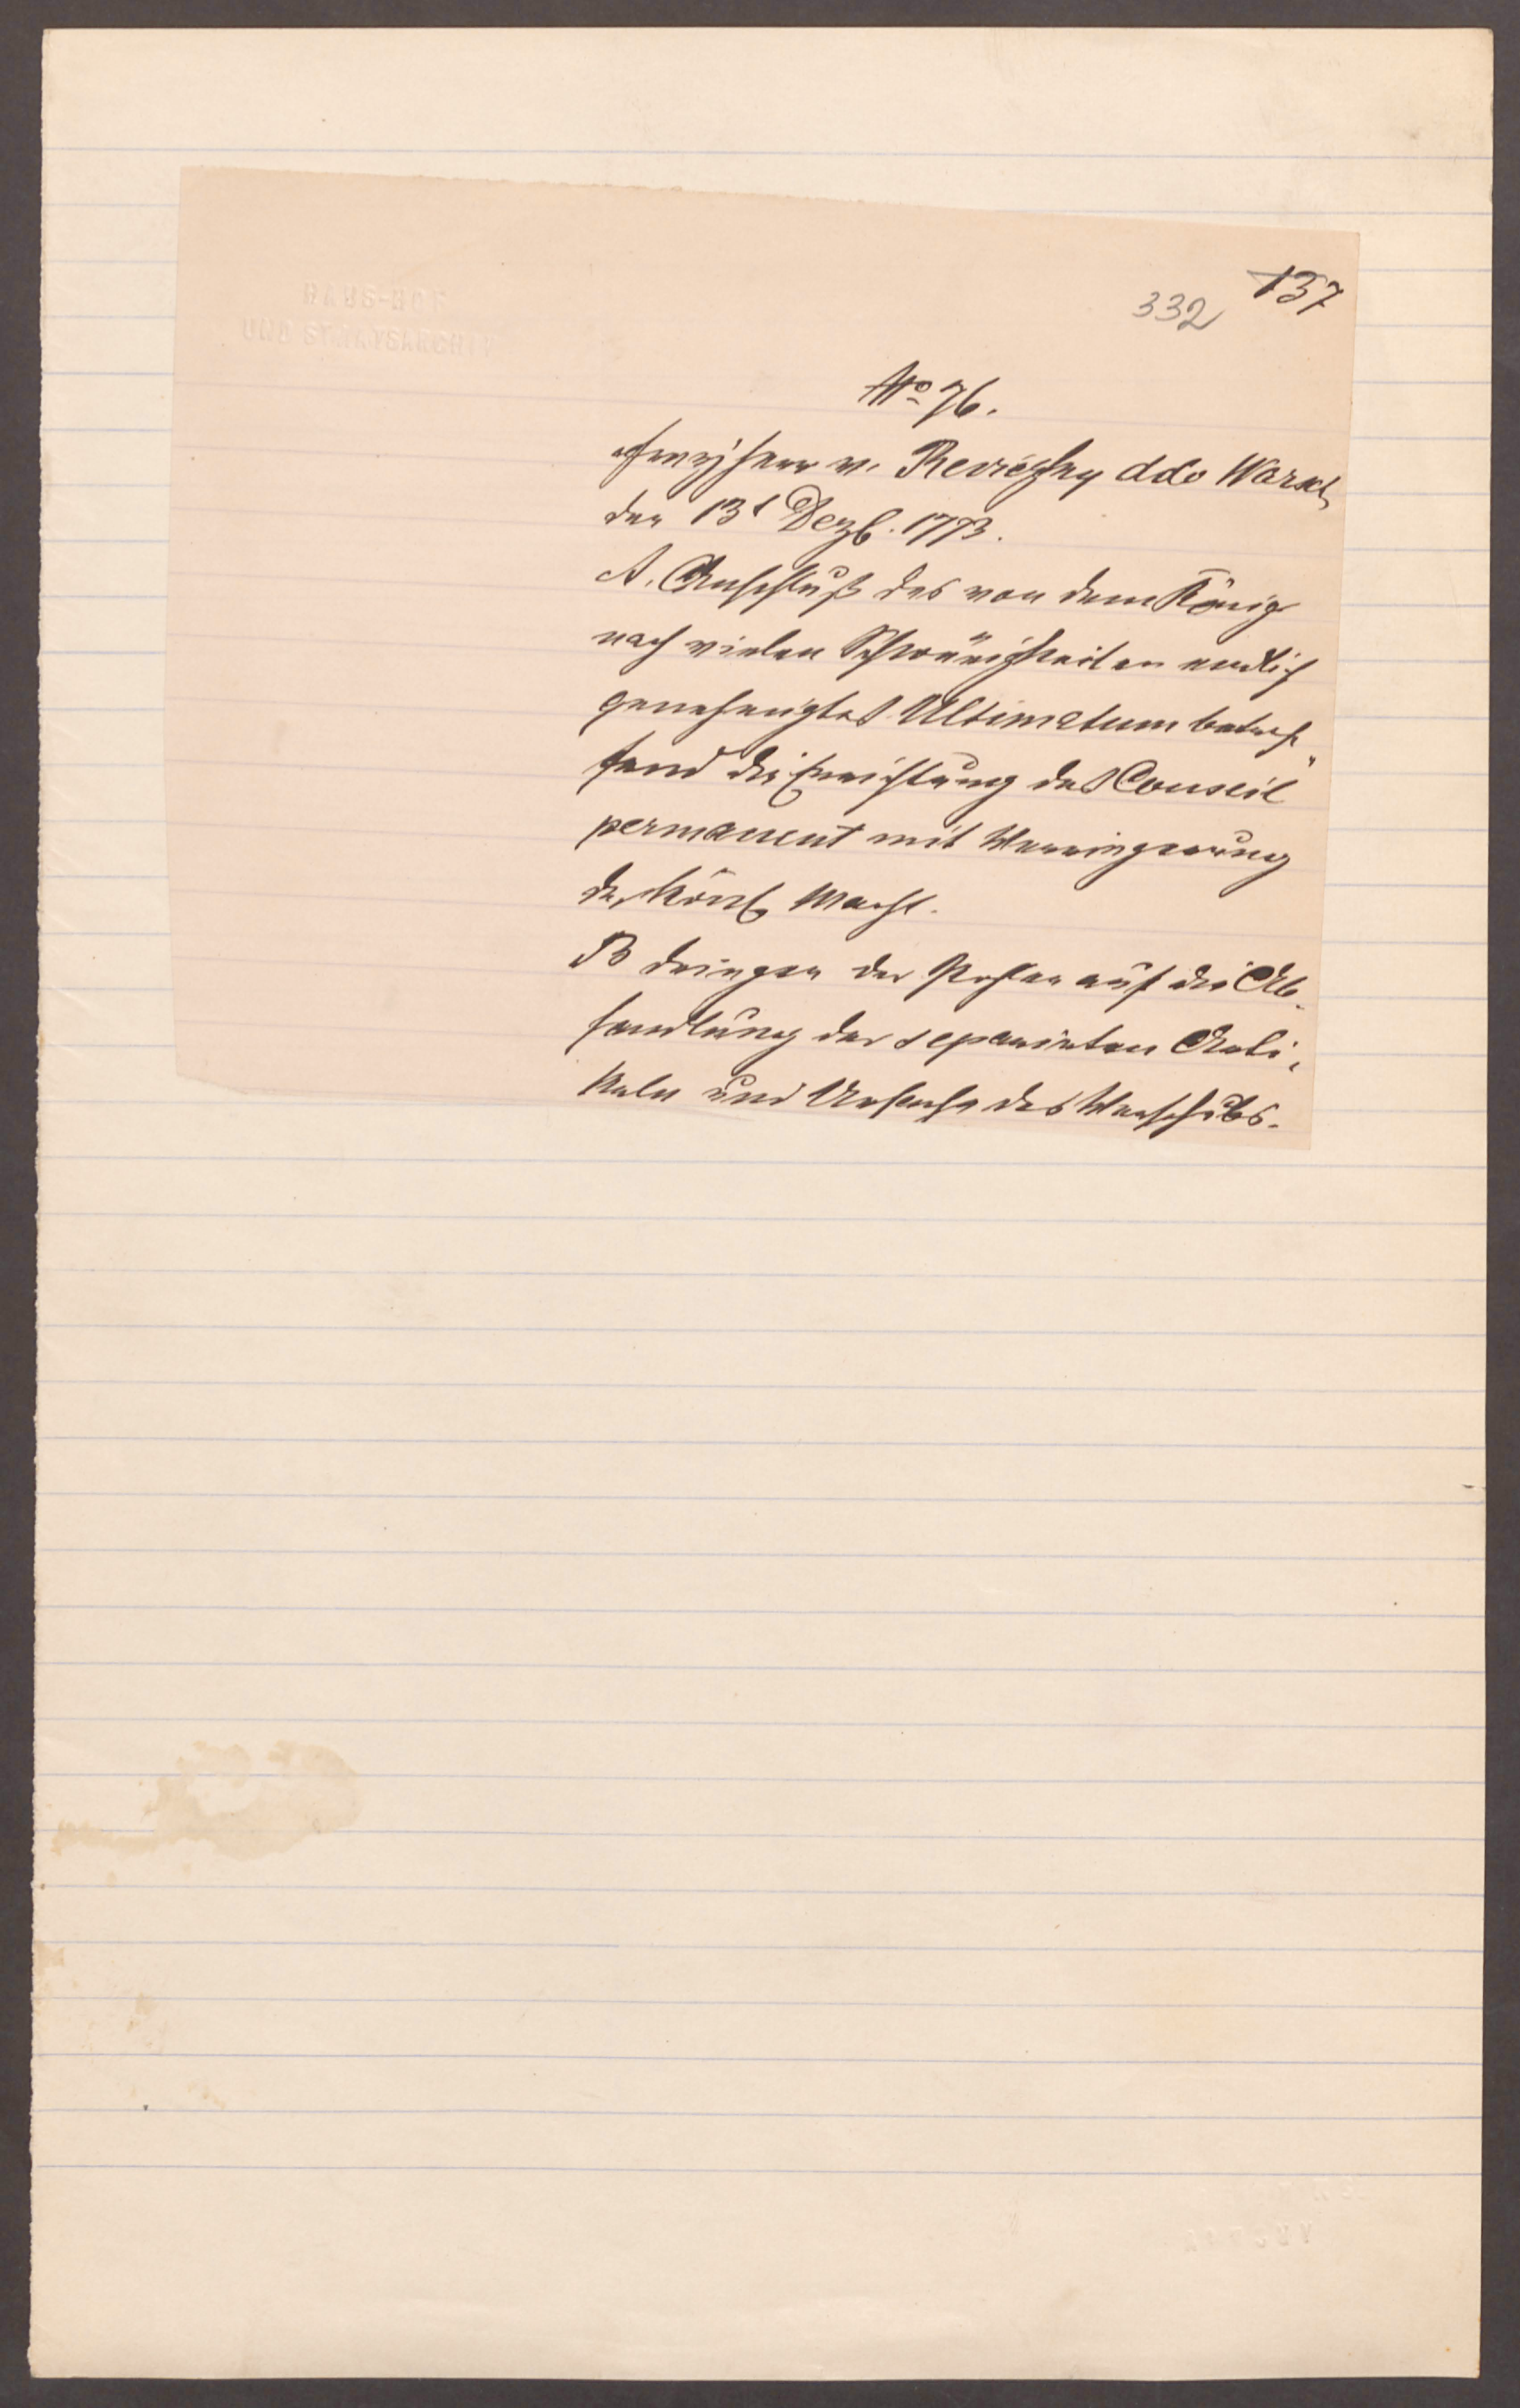 HAUS-HOF
UND STAATSARCHIV
332 137
No 76.
Freyherr v. Reviczky ddo Warsch
den 13t Dezb. 1773.
A. Anschluß des von dem König
nach vielen Schwürigkeiten endlich
genehmigtes Ultimatum betref„
fend die Einrichtung des Conseil
permanent mit Verringerung
der Königl Macht.
B dringen der Pohlen auf die Ab„
handlung der separirten Arti„
keln und des